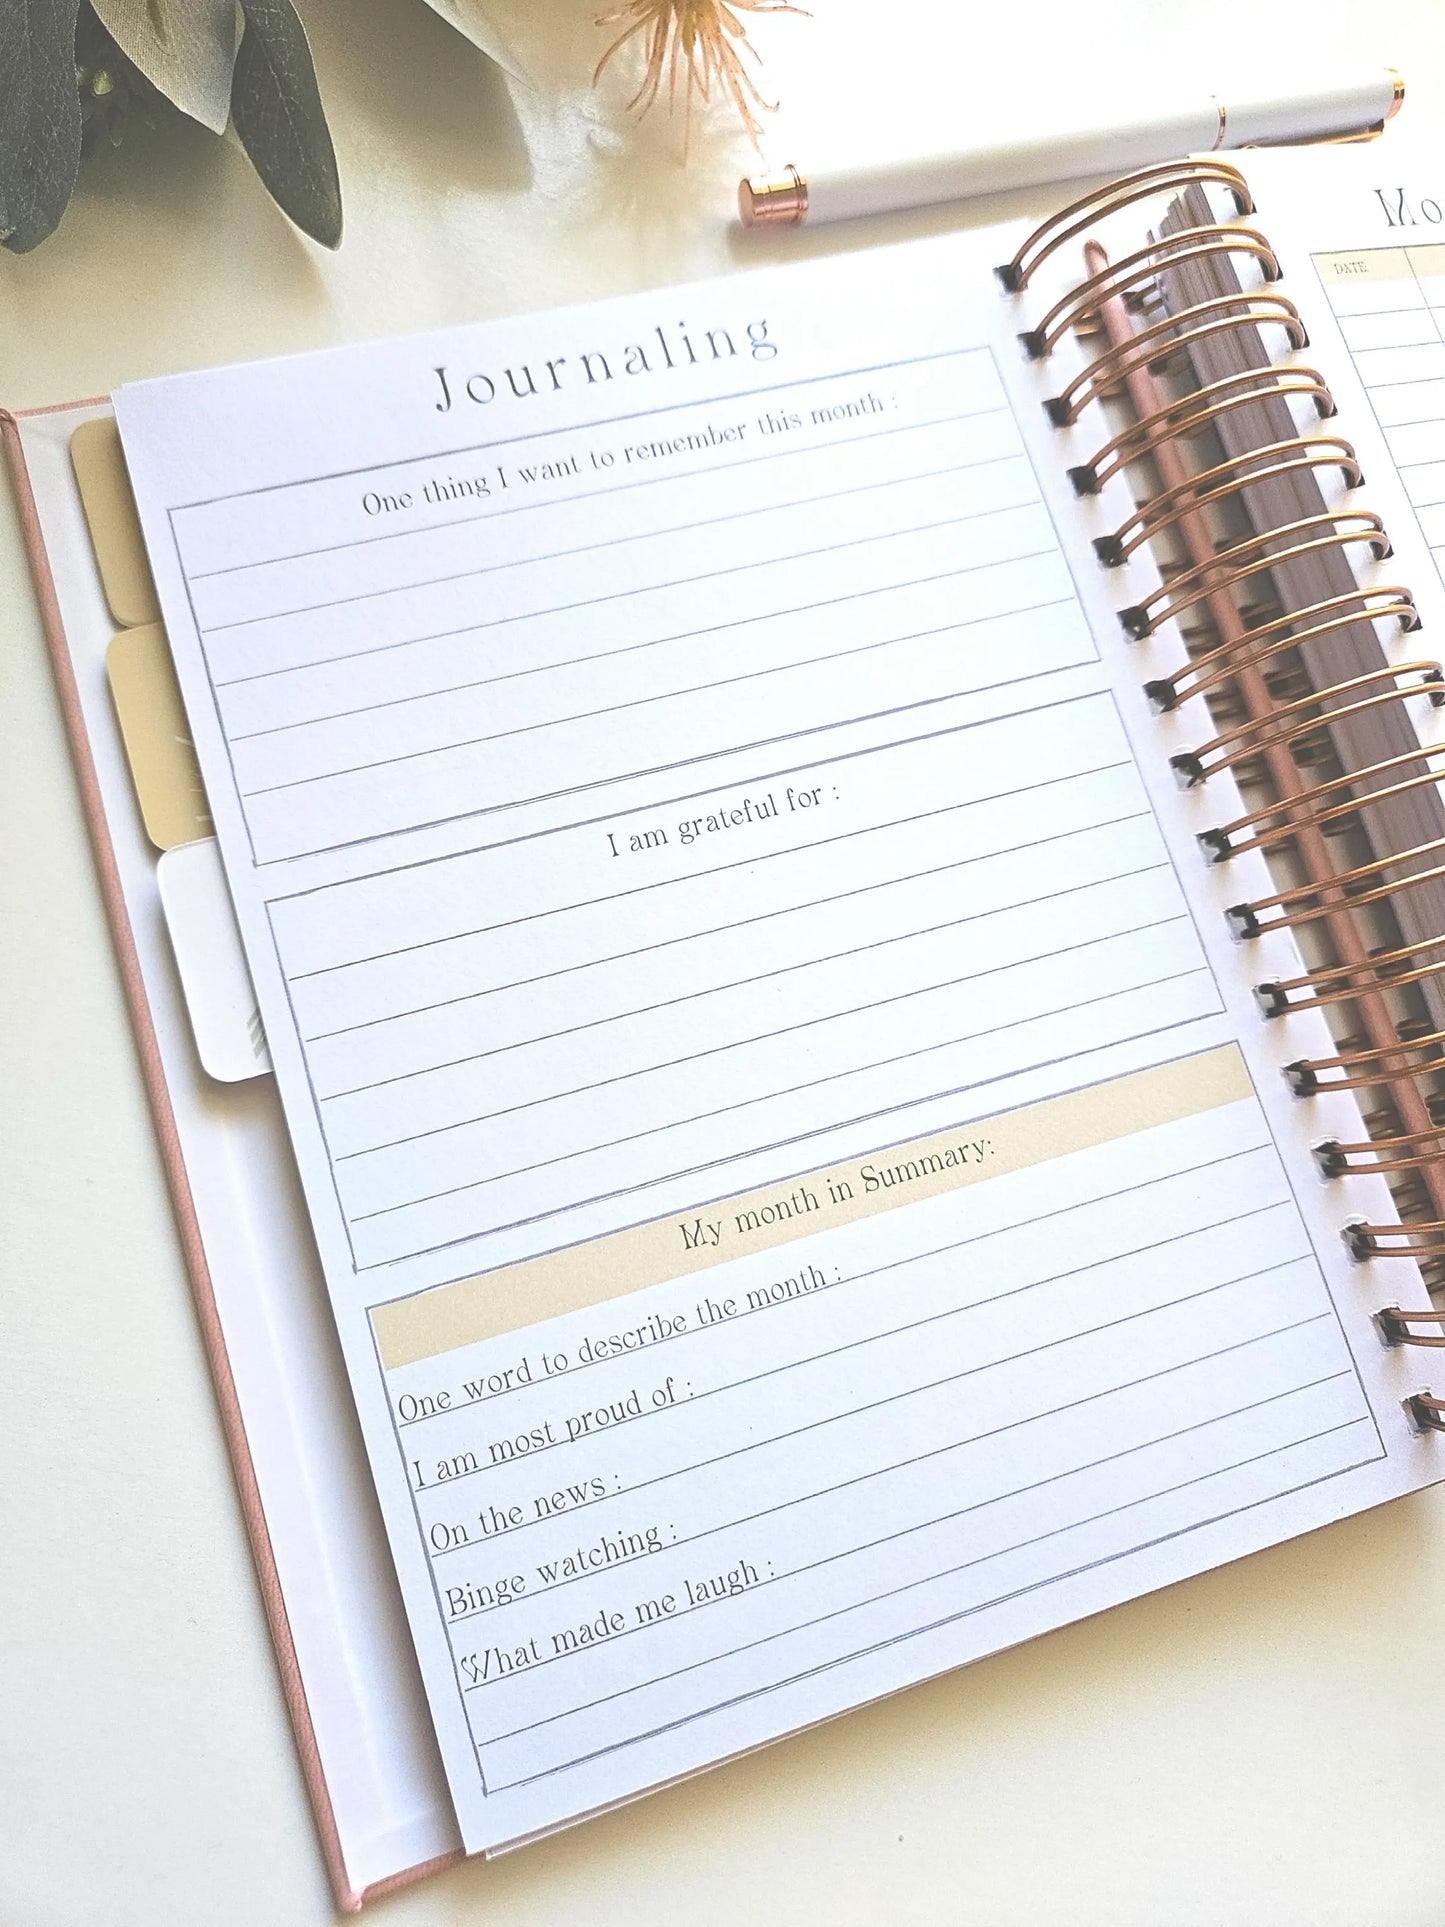 Journaling
One thing I want to remember this month :
I am grateful for :
My month in Summary:
One word to describe the month :
I am most proud of :
On the news :
Binge watching :
What made me laugh :
Mo
DATE